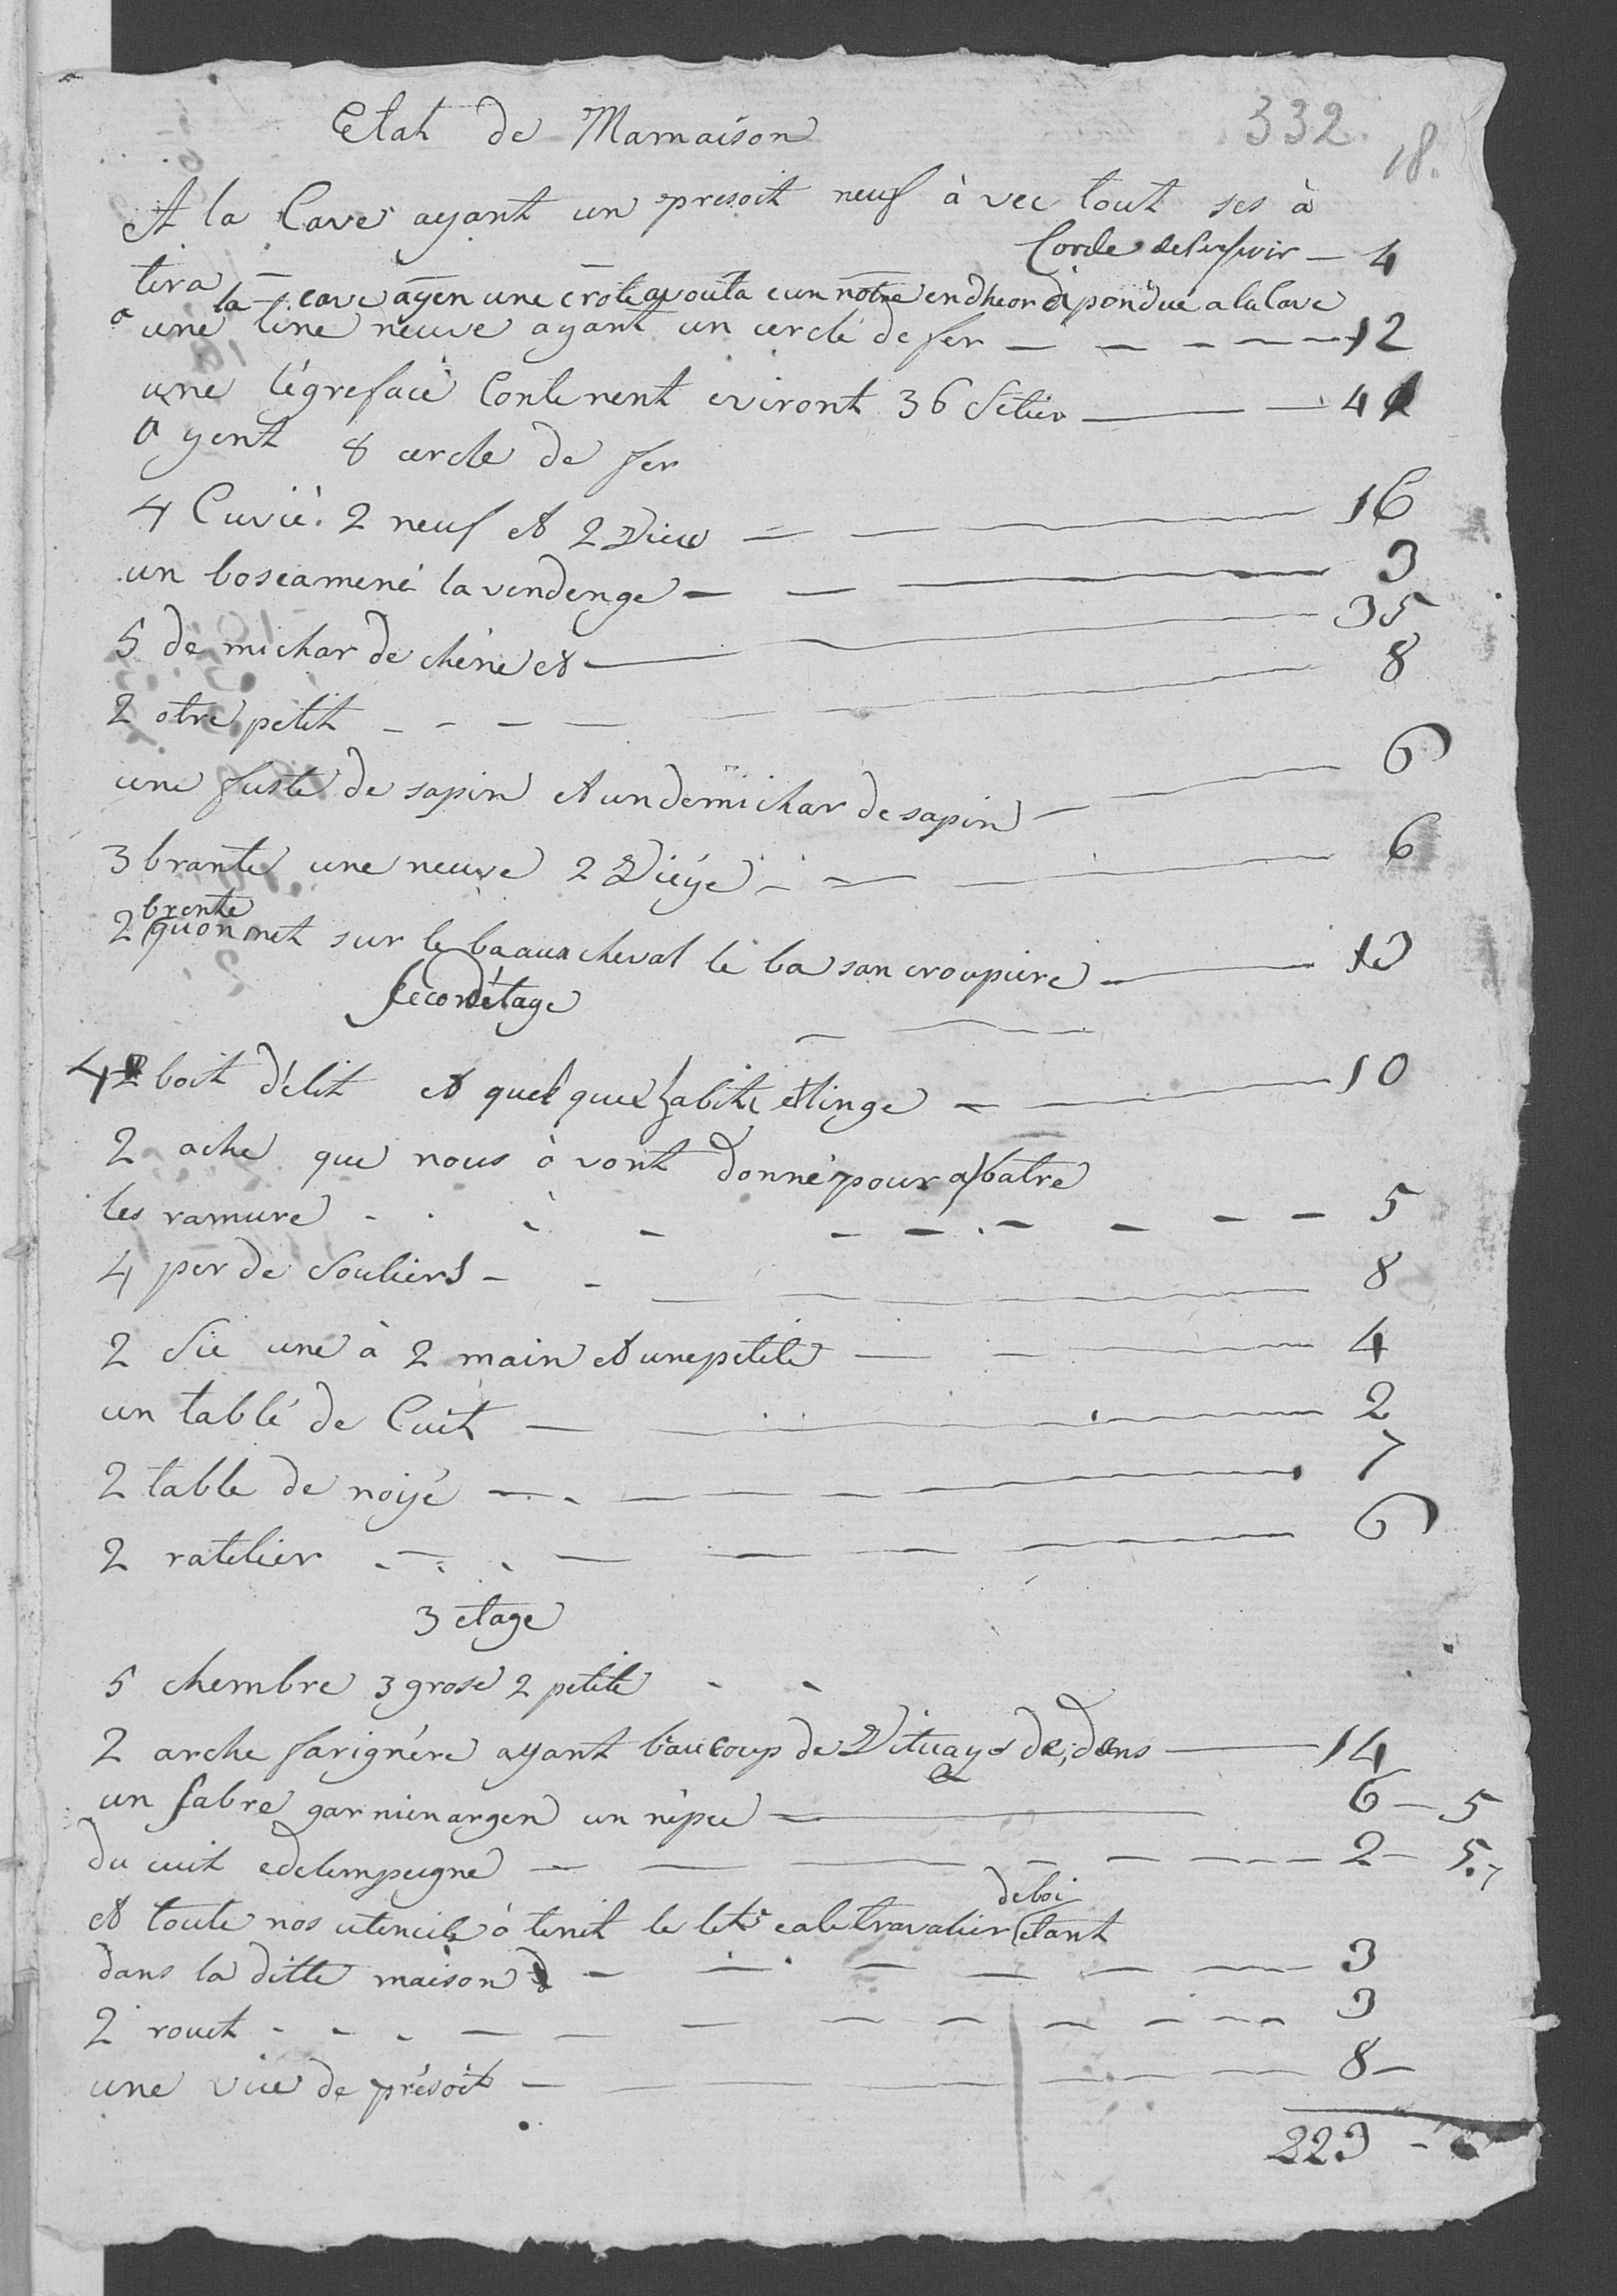 332.
18.
Etat de Mamaison
A la Cave ayant un presoit neuf à vec tout ses à
Corde — 4
tira
la cave ayen une crote avouta eun notre endheor dependue a la lave
une tine neuve ayant un cerclé de fer — 12
une légrefacé Contenent eviront 36 Setier — 4
a yent 8 cercle de fer
4 Cuvié. 2 neuf et 2 Vieu — 16
un boseamené la vendenge — 3
5 de michar de chêne et — 35
2 otre petit — 8
une fuste de sapin et un demichar de sapin — 6
3 brante une neuve 2 Viéye — 6
brente
2 quon met sur le baaux cheval le ba san croupiere — 13
Second étage
4 boit délit et quel que habit et linge — 10
2 ache que nous à vont donné pour abatre
les ramure — 5
4 per de Souliers — 8
2 Sie une à 2 main et une petite — 4
un tablé de Cuit — 2
2 table de noyé — 7
2 ratelier — 6
3 etage
5 chembre 3 grose 2 petite
2 arche farignére ayant baucoup de Vituaye de dens — 14
un sabre garnienargen un népée — 6 — 5
du cuit edelempeigne — 2 — 5
deboi
et toute nos utencile ò tenit le let cale travalier étant
dans la ditte maison — 3
2 rouet — 3
une vice de présoit — 8 —
223 —